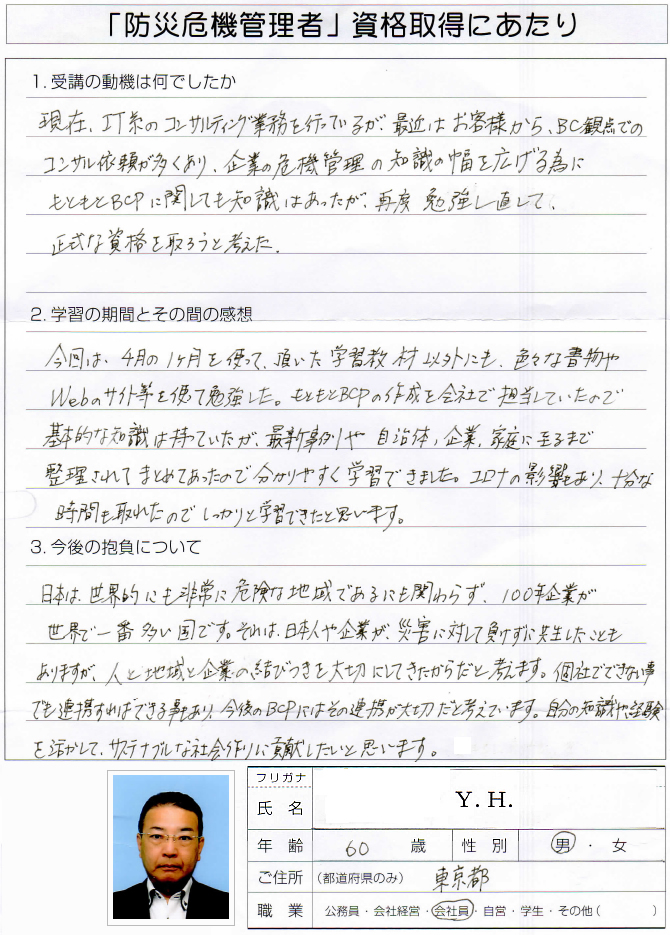 「防災危機管理者」資格取得にあたり
1. 受講の動機は何でしたか
現在、IT系のコンサルティング業務を行っているが、最近はお客様から、BC観点での
コンサル依頼が多くあり、企業の危機管理の知識の幅を広げる為に
もともとBCPに関しても知識はあったが、再度勉強し直して、
正式な資格を取ろうと考えた.
2. 学習の期間とその間の感想
今回は、4月の1ヶ月を使って、頂いた学習教材以外にも、色々な書物や
Webのサイト等を使って勉強した。もともとBCPの作成を会社で担当していたので
基本的な知識は持っていたが、最新事例や自治体,企業,家庭に至るまで
整理されてまとめてあったので分かりやすく学習できました。コロナの影響もあり、十分な
時間も取れたのでしっかりと学習できたと思います。
3. 今後の抱負について
日本は、世界的にも非常に危険な地域であるにも関わらず、100年企業が
世界で一番多い国です。それは、日本人や企業が、災害に対して負けずに共生したことも
ありますが、人と地域と企業の結びつきを大切にしてきたからだと考えます。個社でできない事
でも連携すればできる事もあり、今後のBCPにはその連携が大切だと考えています。自分の知識や経験
を活かして、サステナブルな社会作りに貢献したいと思います。
フリガナ
氏 名 Y. H.
年 齢 60 歳 性 別 男・女
ご住所 (都道府県のみ) 東京都
職 業 公務員・会社経営・会社員・自営・学生・その他( )